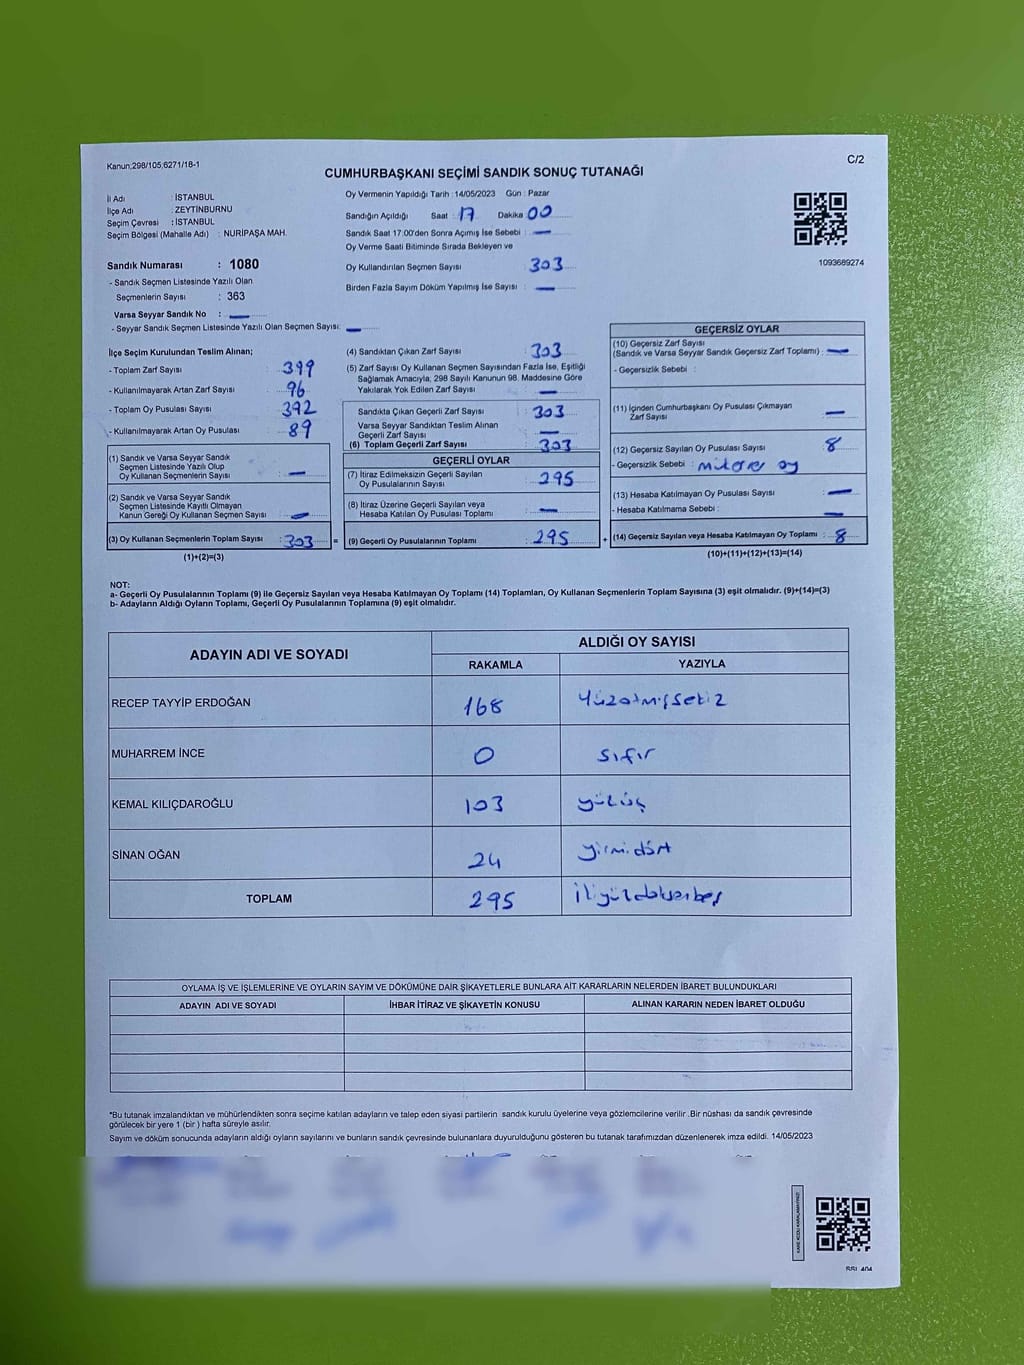 Kanun;298/105,6271/18-1
C/2
CUMHURBAŞKANI SEÇİMİ SANDIK SONUÇ TUTANAĞI
İl Adı : İSTANBUL
İlçe Adı : ZEYTİNBURNU
Seçim Çevresi : İSTANBUL
Seçim Bölgesi (Mahalle Adı) : NURİPAŞA MAH.
Oy Vermenin Yapıldığı Tarih : 14/05/2023 Gün : Pazar
Sandığın Açıldığı Saat : 17 Dakika 00
Sandık Saat 17:00'den Sonra Açımış İse Sebebi : —
Oy Verme Saati Bitiminde Sırada Bekleyen ve
Oy Kullandırılan Seçmen Sayısı : 303
Birden Fazla Sayım Döküm Yapılmış İse Sayısı : —
1093689274
Sandık Numarası : 1080
- Sandık Seçmen Listesinde Yazılı Olan
Seçmenlerin Sayısı : 363
Varsa Seyyar Sandık No : —
- Seyyar Sandık Seçmen Listesinde Yazılı Olan Seçmen Sayısı: —
İlçe Seçim Kurulundan Teslim Alınan;
- Toplam Zarf Sayısı : 399
- Kullanılmayarak Artan Zarf Sayısı : 96
- Toplam Oy Pusulası Sayısı : 392
- Kullanılmayarak Artan Oy Pusulası : 89
(1) Sandık ve Varsa Seyyar Sandık
Seçmen Listesinde Yazılı Olup
Oy Kullanan Seçmenlerin Sayısı : —
(2) Sandık ve Varsa Seyyar Sandık
Seçmen Listesinde Kayıtlı Olmayan
Kanun Gereği Oy Kullanan Seçmen Sayısı : —
(3) Oy Kullanan Seçmenlerin Toplam Sayısı : 303 =
(1)+(2)=(3)
(4) Sandıktan Çıkan Zarf Sayısı : 303
(5) Zarf Sayısı Oy Kullanan Seçmen Sayısından Fazla İse, Eşitliği
Sağlamak Amacıyla; 298 Sayılı Kanunun 98. Maddesine Göre
Yakılarak Yok Edilen Zarf Sayısı : —
Sandıkta Çıkan Geçerli Zarf Sayısı : 303
Varsa Seyyar Sandıktan Teslim Alınan
Geçerli Zarf Sayısı : —
(6) Toplam Geçerli Zarf Sayısı : 303
GEÇERLİ OYLAR
(7) İtiraz Edilmeksizin Geçerli Sayılan
Oy Pusulalarının Sayısı : 295
(8) İtiraz Üzerine Geçerli Sayılan veya
Hesaba Katılan Oy Pusulası Toplamı : —
(9) Geçerli Oy Pusulalarının Toplamı : 295 +
GEÇERSİZ OYLAR
(10) Geçersiz Zarf Sayısı
(Sandık ve Varsa Seyyar Sandık Geçersiz Zarf Toplamı) : —
- Geçersizlik Sebebi :
(11) İçinden Cumhurbaşkanı Oy Pusulası Çıkmayan
Zarf Sayısı : —
(12) Geçersiz Sayılan Oy Pusulası Sayısı : 8
- Geçersizlik Sebebi : oy
(13) Hesaba Katılmayan Oy Pusulası Sayısı : —
- Hesaba Katılmama Sebebi : —
(14) Geçersiz Sayılan veya Hesaba Katılmayan Oy Toplamı : 8
(10)+(11)+(12)+(13)=(14)
NOT:
a- Geçerli Oy Pusulalarının Toplamı (9) ile Geçersiz Sayılan veya Hesaba Katılmayan Oy Toplamı (14) Toplamları, Oy Kullanan Seçmenlerin Toplam Sayısına (3) eşit olmalıdır. (9)+(14)=(3)
b- Adayların Aldığı Oyların Toplamı, Geçerli Oy Pusulalarının Toplamına (9) eşit olmalıdır.
ADAYIN ADI VE SOYADI
ALDIĞI OY SAYISI
RAKAMLA YAZIYLA
RECEP TAYYİP ERDOĞAN 168 Yüzatmışsekiz
MUHARREM İNCE 0 sıfır
KEMAL KILIÇDAROĞLU 103 yüzüç
SİNAN OĞAN 24 yirmidört
TOPLAM 295 ikiyüzdoksanbeş
OYLAMA İŞ VE İŞLEMLERİNE VE OYLARIN SAYIM VE DÖKÜMÜNE DAİR ŞİKAYETLERLE BUNLARA AİT KARARLARIN NELERDEN İBARET BULUNDUKLARI
ADAYIN ADI VE SOYADI İHBAR İTİRAZ VE ŞİKAYETİN KONUSU ALINAN KARARIN NEDEN İBARET OLDUĞU
*Bu tutanak imzalandıktan ve mühürlendikten sonra seçime katılan adayların ve talep eden siyasi partilerin sandık kurulu üyelerine veya gözlemcilerine verilir .Bir nüshası da sandık çevresinde
görülecek bir yere 1 (bir ) hafta süreyle asılır.
Sayım ve döküm sonucunda adayların aldığı oyların sayılarını ve bunların sandık çevresinde bulunanlara duyurulduğunu gösteren bu tutanak tarafımızdan düzenlenerek imza edildi. 14/05/2023